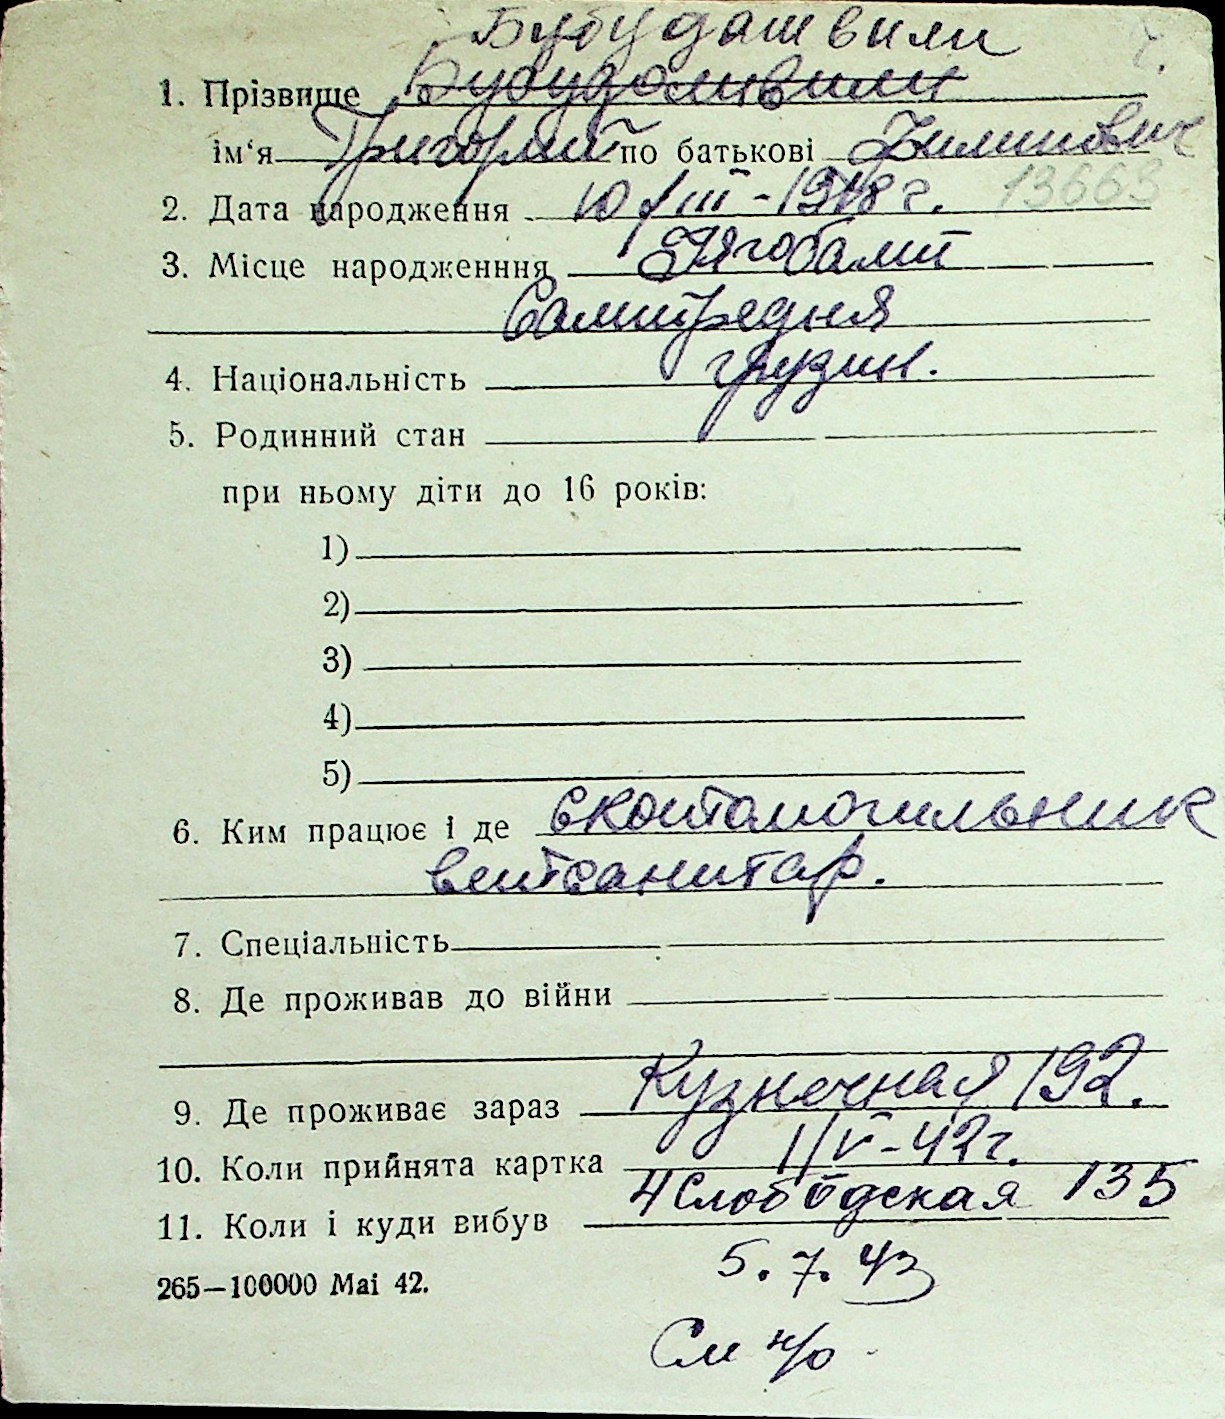 Бубудашвили
1. Прізвище Бубудошвили
ім‘я Григорий по батькові Филиппович
2. Дата народження 10/III-1918 г. 13663
3. Місце народженння
Самтредня
4. Національність грузин.
5. Родинний стан
при ньому діти до 16 років:
1)
2)
3)
4)
5)
6. Ким працює і де скотомогильник
ветсанитар.
7. Спеціальність
8. Де проживав до війни
9. Де проживає зараз Кузнечная 192.
10. Коли прийнята картка 1/V-42 г.
11. Коли і куди вибув 4 Слободская 135
265—100000 Mai 42. 5. 7. 43
См н/о